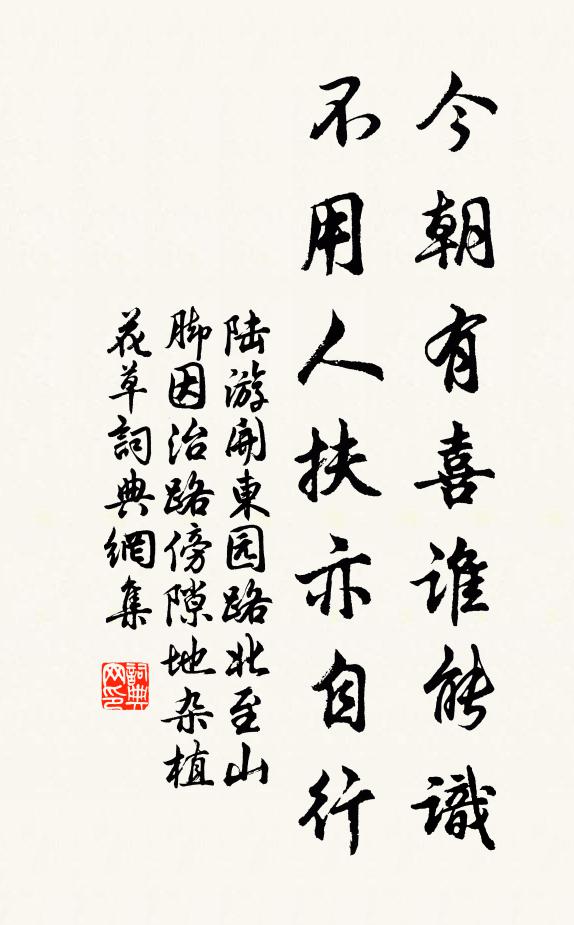 今朝有喜谁能識
不用人扶亦自行
陆游開東园路北至山
脚因治路傍隙地杂植
花草詞典網集
詞典
网印